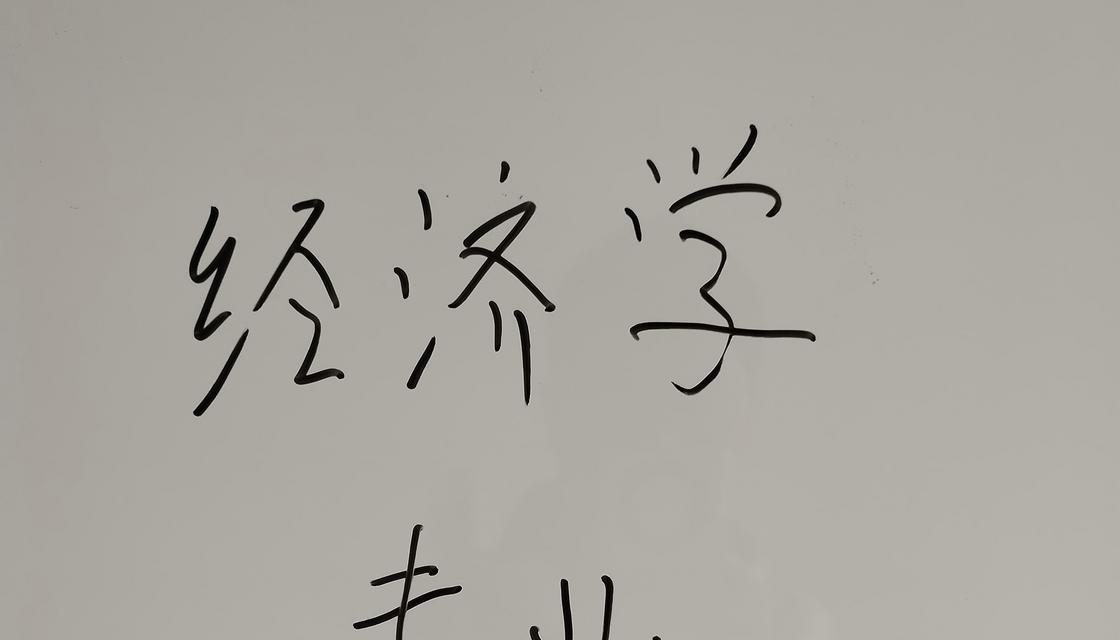 经济学
专业